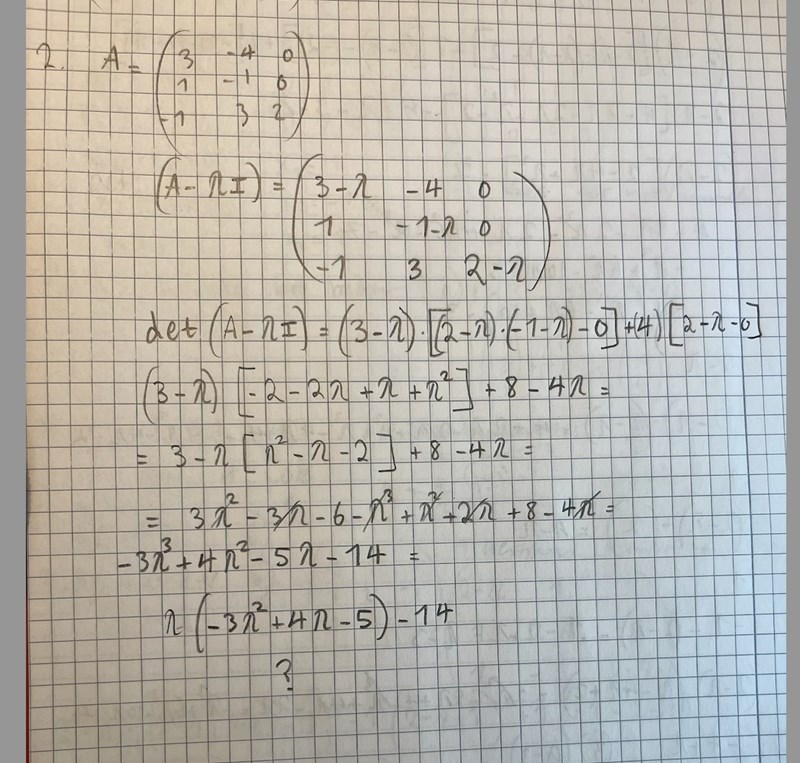 2. A = (3 -4 0
1 -1 0
-1 3 2)
(A - λI) = (3-λ -4 0
1 -1-λ 0
-1 3 2-λ)
det (A-λI) = (3-λ)·[(2-λ)·(-1-λ)-0]+(4)[2-λ-0]
(3-λ) [-2-2λ+λ+λ²] + 8 - 4λ =
= 3-λ [λ²-λ-2] + 8 - 4λ =
= 3λ² - 3λ - 6 - λ³ + λ² + 2λ + 8 - 4λ =
-3λ³ + 4λ² - 5λ - 14 =
λ (-3λ² + 4λ - 5) - 14
?